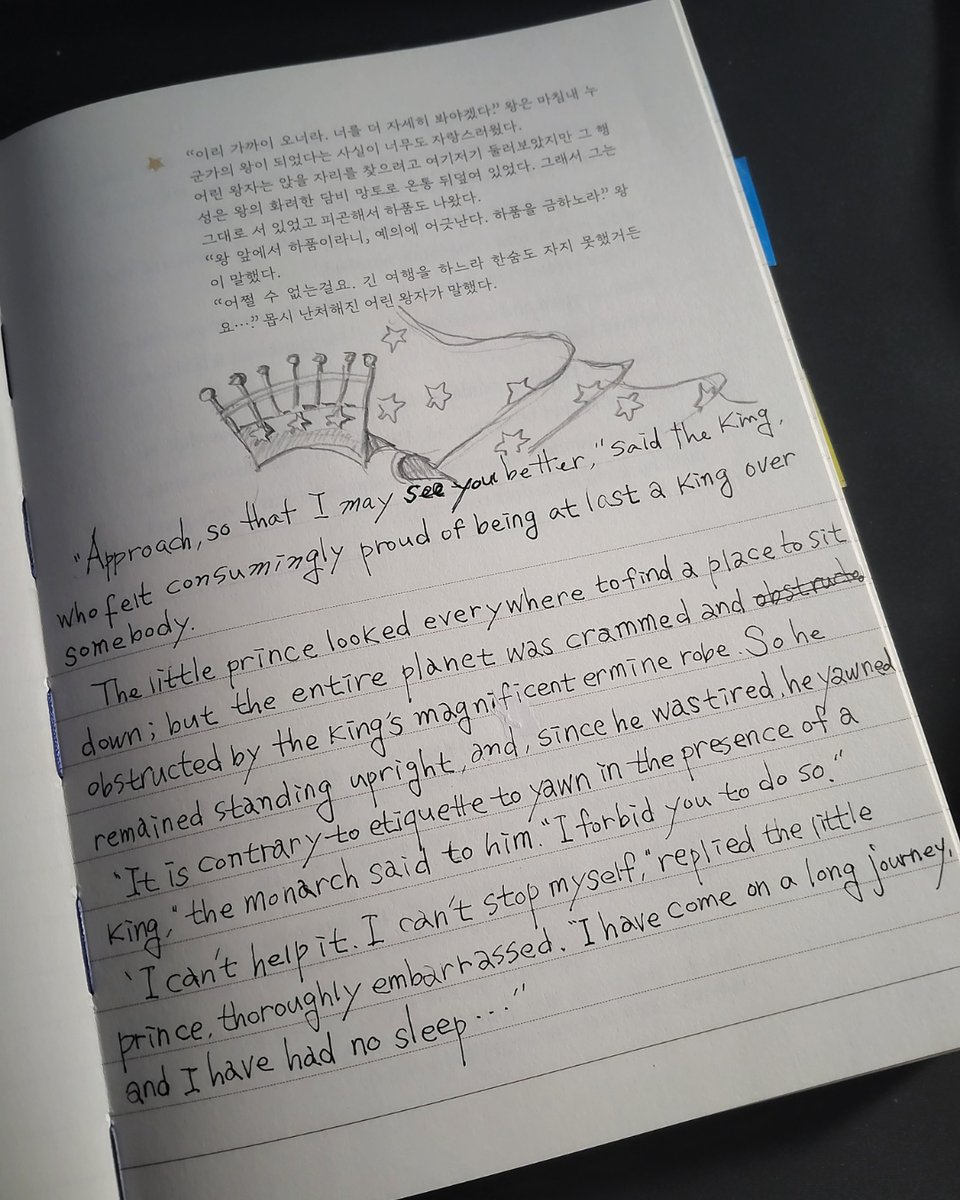 “이리 가까이 오너라. 너를 더 자세히 봐야겠다!” 왕은 마침내 누
군가의 왕이 되었다는 사실이 너무도 자랑스러웠다.
어린 왕자는 앉을 자리를 찾으려고 여기저기 둘러보았지만 그 행
성은 왕의 화려한 담비 망토로 온통 뒤덮여 있었다. 그래서 그는
그대로 서 있었고 피곤해서 하품도 나왔다.
“왕 앞에서 하품이라니, 예의에 어긋난다. 하품을 금하노라!” 왕
이 말했다.
“어쩔 수 없는걸요. 긴 여행을 하느라 한숨도 자지 못했거든
요…!” 몹시 난처해진 어린 왕자가 말했다.
"Approach, so that I may see you better," said the King,
who felt consumingly proud of being at last a King over
somebody.
The little prince looked everywhere to find a place to sit
down; but the entire planet was crammed and obstructe
obstructed by the King's magnificent ermine robe. So he
remained standing upright, and, since he was tired, he yawned
"It is contrary to etiquette to yawn in the presence of a
King," the monarch said to him. "I forbid you to do so."
"I can't help it. I can't stop myself," replied the little
prince, thoroughly embarrassed. "I have come on a long journey,
and I have had no sleep..."